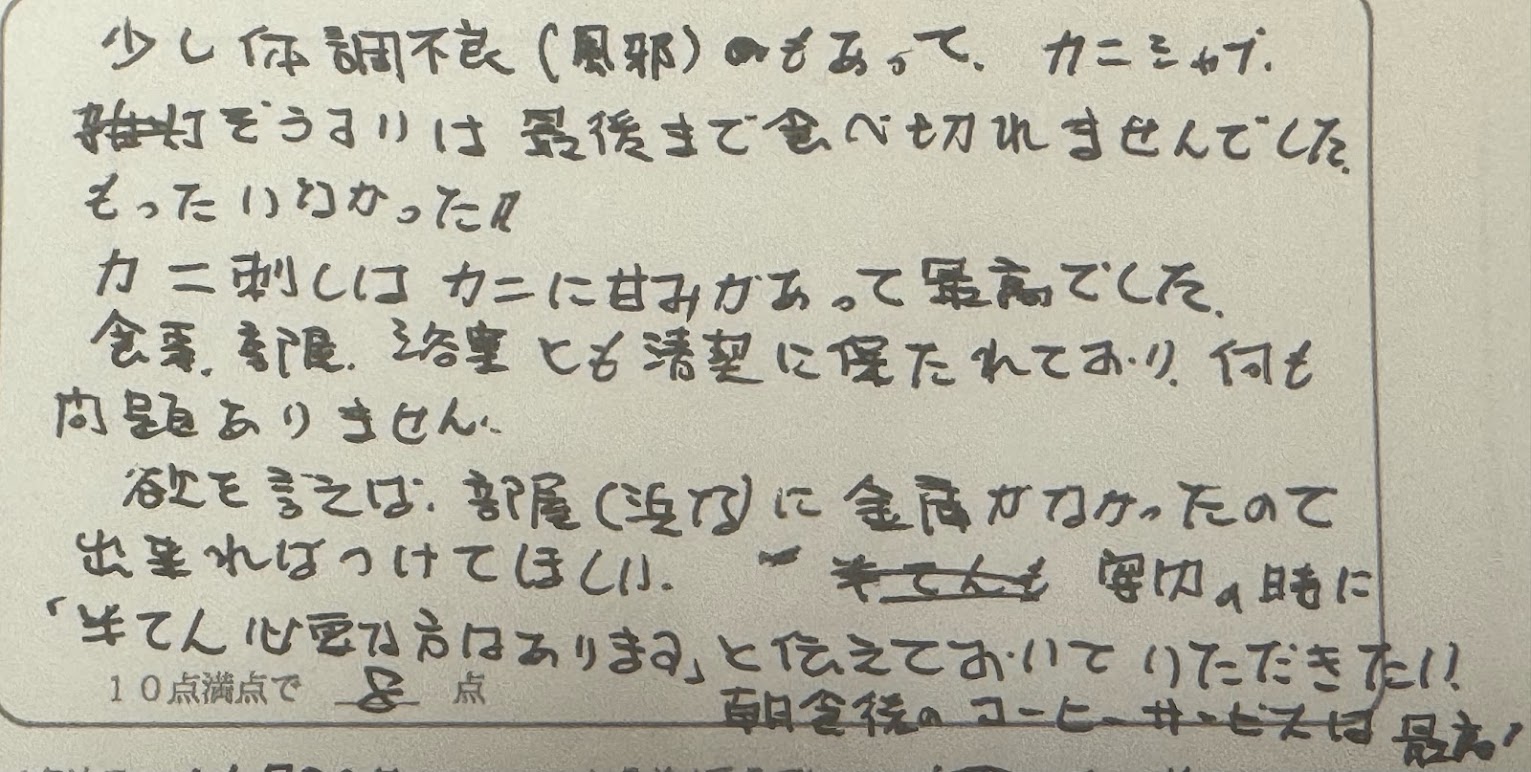 少し体調不良(風邪)もあって、カニシャブ、
ぞうすいは最後まで食べ切れませんでした。
もったいなかった!!
カニ刺しはカニに甘みがあって最高でした。
食事、部屋、浴室とも清潔に保たれており、何も
問題ありません。
欲を言えば、部屋(浜なす)に金庫がなかったので
出来ればつけてほしい。 案内の時に
「半てん必要な方はあります」と伝えておいていただきたい!
10点満点で 8 点
朝食後のコーヒーサービスは最高!